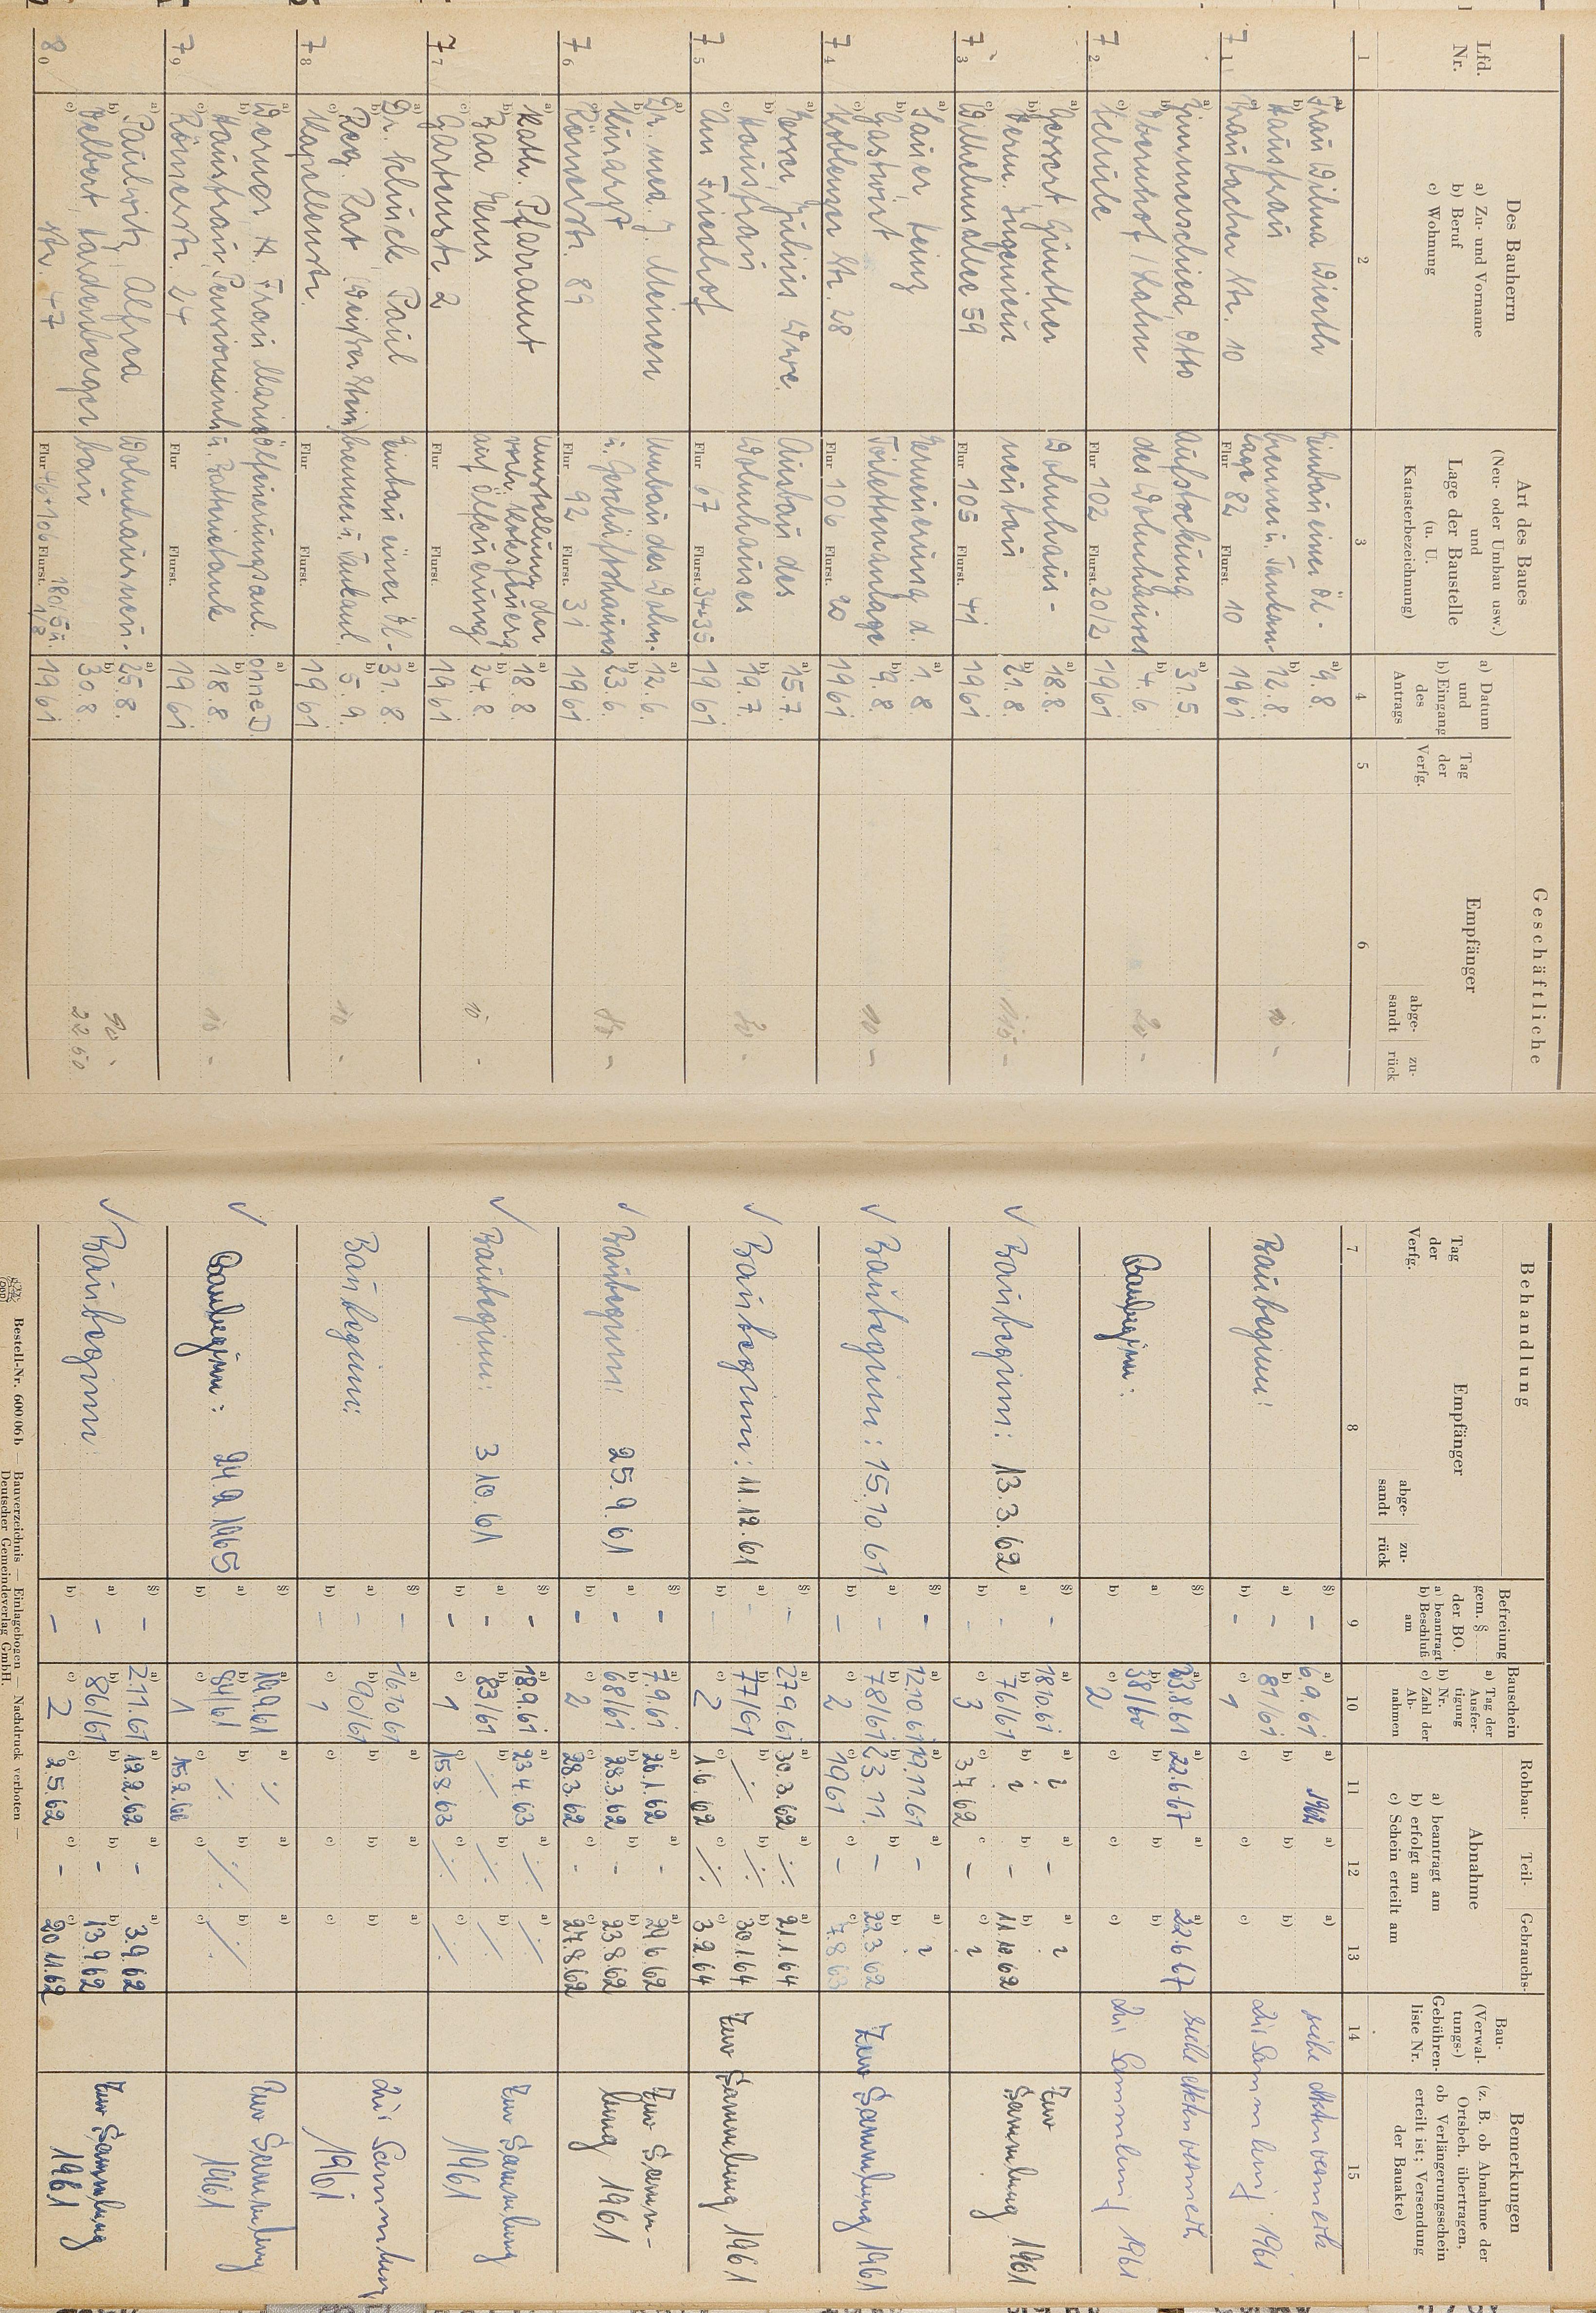 Geschäftliche
Behandlung
Lfd.
Nr.
Des Bauherrn
a) Zu- und Vorname
b) Beruf
c) Wohnung
Art des Baues
(Neu- oder Umbau usw.)
und
Lage der Baustelle
(u. U.
Katasterbezeichnung)
a) Datum
und
b) Eingang
des
Antrags
Tag
der
Verfg.
Empfänger
abge-
sandt
zu-
rück
Tag
der
Verfg.
Empfänger
abge-
sandt
zu-
rück
Befreiung
gem. §......
der BO.
a) beantragt
b) Beschluß
am
Bauschein
a) Tag der
Ausfer-
tigung
b) Nr.
c) Zahl der
Ab-
nahmen
Rohbau-
Teil-
Gebrauchs-
Abnahme
a) beantragt am
b) erfolgt am
c) Schein erteilt am
Bau-
(Verwal-
tungs-)
Gebühren-
liste Nr.
Bemerkungen
(z. B. ob Abnahme der
Ortsbeh. übertragen,
ob Verlängerungsschein
erteilt ist; Versendung
der Bauakte)
1 2 3 4 5 6 7 8 9 10 11 12 13 14 15
71
a) Frau Wilma Wierth
b) Hausfrau
c) Braubacher Str. 10
Einbau einer Öl-
brenner u. Tankan-
lage
Flur 82 Flurst. 10
a) 9.8.
b) 12.8.
1961
10 -
Baubeginn:
§) -
a) -
b) -
a) 6.9.61
b) 81/61
c) 1
a) 1962
siehe Aktenvermerk
Zur Sammlung 1961
72
a) Zimmerschied, Otto
b) Obernhof / Lahn
c) Schule
Aufstockung
des Wohnhauses
Flur 102 Flurst. 20/2
a) 31.5.
b) 4.6.
1961
20 -
Baubeginn:
a) 23.8.61
b) 38/60
c) 2
a) 22.6.67
a) 22.6.67
siehe Aktenvermerk
Zur Sammlung 1961
73
a) Gossert Günther
b) Verm. Ingenieur
c) Wilhelmsallee 59
Wohnhaus-
neubau
Flur 105 Flurst. 41
a) 18.8.
b) 21.8.
1961
110 -
✓ Baubeginn: 13.3.62
§) -
a) -
b) -
a) 18.10.61
b) 76/61
c) 3
a) ?
b) ?
c) 3.7.62
a) -
b) -
c) -
a) ?
b) 11.10.62
c) ?
Zur
Sammlung 1961
74
a) Sauer, Heinz
b) Gastwirt
c) Koblenzer Str. 28
Erneuerung d.
Toilettenanlage
Flur 106 Flurst. 20
a) 1.8.
b) 9.8.
1961
10 -
✓ Baubeginn: 15.10.61
§) -
a) -
b) -
a) 12.10.61
b) 78/61
c) 2
a) 19.11.61
b) 23.11.
c) 1961
a) -
b) -
c) -
a) ?
b) 22.3.62
c) 7.8.63
Zur Sammlung 1961
75
a) Julius Wwe.
b) Hausfrau
c) Am Friedhof
Ausbau des
Wohnhauses
Flur 67 Flurst. 34+35
a) 15.7.
b) 19.7.
1961
20 -
✓ Baubeginn: 11.12.61
§) -
a) -
b) -
a) 27.9.61
b) 77/61
c) 2
a) 30.3.62
b) ·/.
c) 1.6.62
a) ·/.
b) ·/.
c) ·/.
a) 21.1.64
b) 30.1.64
c) 3.2.64
Zur Sammlung 1961
76
a) Dr. med. J. Meinen
b) Kurarzt
c) Römerstr. 89
Umbau des Wohn-
u. Geschäftshauses
Flur 92 Flurst. 31
a) 12.6.
b) 23.6.
1961
✓ Baubeginn: 25.9.61
§) -
a) -
b) -
a) 7.9.61
b) 68/61
c) 2
a) 26.1.62
b) 28.3.62
c) 28.3.62
a) -
b) -
c) -
a) 29.6.62
b) 23.8.62
c) 27.8.62
Zur Samm-
lung 1961
77
a) Kath. Pfarramt
b) Bad Ems
c) Gartenstr. 2
Umstellung der
vorh. Koksfeuerg
auf Ölfeuerung
Flur Flurst.
a) 18.8.
b) 24.8.
1961
10 -
✓ Baubeginn: 3.10.61
§) -
a) -
b) -
a) 18.9.61
b) 83/61
c) 1
a) 23.4.63
b) ·/.
c) 15.8.63
a) ·/.
b) ·/.
c) ·/.
a) ·/.
b) ·/.
c) ·/.
Zur Sammlung
1961
78
a) Dr. Schück, Paul
b) Reg. Rat (Weißer Stein)
c) Kapellenstr.
Einbau einer Öl-
brenner u. Tankanl.
Flur Flurst.
a) 31.8.
b) 5.9.
1961
10 -
Baubeginn:
§) -
a) -
b) -
a) 16.10.61
b) 90/61
c) 1
a)
b)
c)
Zur Sammlung
1961
79
a) Werner, H. Frau Marie
b) Hausfrau, Pensionsinh.
c) Römerstr. 24
Ölfeuerungsanl.
u. Batterietank
Flur Flurst.
a) ohne D.
b) 18.8.
1961
10 -
✓ Baubeginn: 24.9.1965
a) 19.9.61
b) 84/61
c) 1
a) ·/.
b) ·/.
b) ·/.
b) ·/.
Zur Sammlung
1961
80
a) Paulwitz, Alfred
b) Selbert, Hardenberger
c) Str. 47
Wohnhausneu-
bau
Flur Flurst.
a) 25.8.
b) 30.8.
1961
90 -
22 50
✓ Baubeginn:
§) -
a) -
b) -
a) 2.11.61
b) 86/61
c) 2
a) 19.2.62
c) 2.5.62
a) -
b) -
c) -
a) 3.9.62
b) 13.9.62
c) 20.11.62
Zur Sammlung
1961
Bestell-Nr. 600/06 b — Bauverzeichnis — Einlagebogen — Nachdruck verboten —
Deutscher Gemeindeverlag GmbH.